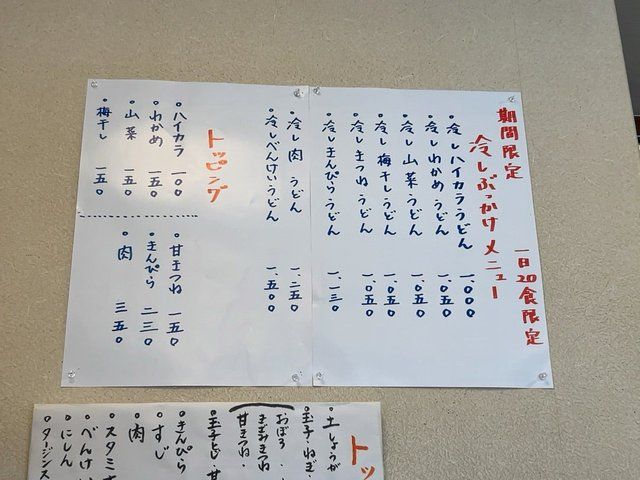 期間限定
一日20食限定
冷しぶっかけメニュー
・冷しハイカラうどん 一、〇〇〇
・冷しわかめうどん 一、〇五〇
・冷し山菜うどん 一、〇五〇
・冷し梅干しうどん 一、〇五〇
・冷しきつねうどん 一、〇五〇
・冷しきんぴらうどん 一、一三〇
・冷し肉うどん 一、二五〇
・冷しべんけいうどん 一、五〇〇
トッピング
・ハイカラ 一〇〇
・わかめ 一五〇
・山菜 一五〇
・梅干し 一五〇
・甘きつね 一五〇
・きんぴら 二三〇
・肉 三五〇
トッ
・土しょうが
・玉子・ねぎ・
おぼろ・
きざみきつね
甘きつね・
・玉子とじ・甘
・きんぴら
・すじ
・肉
・スタミナ
・べんけい
・にしん
・タージンス